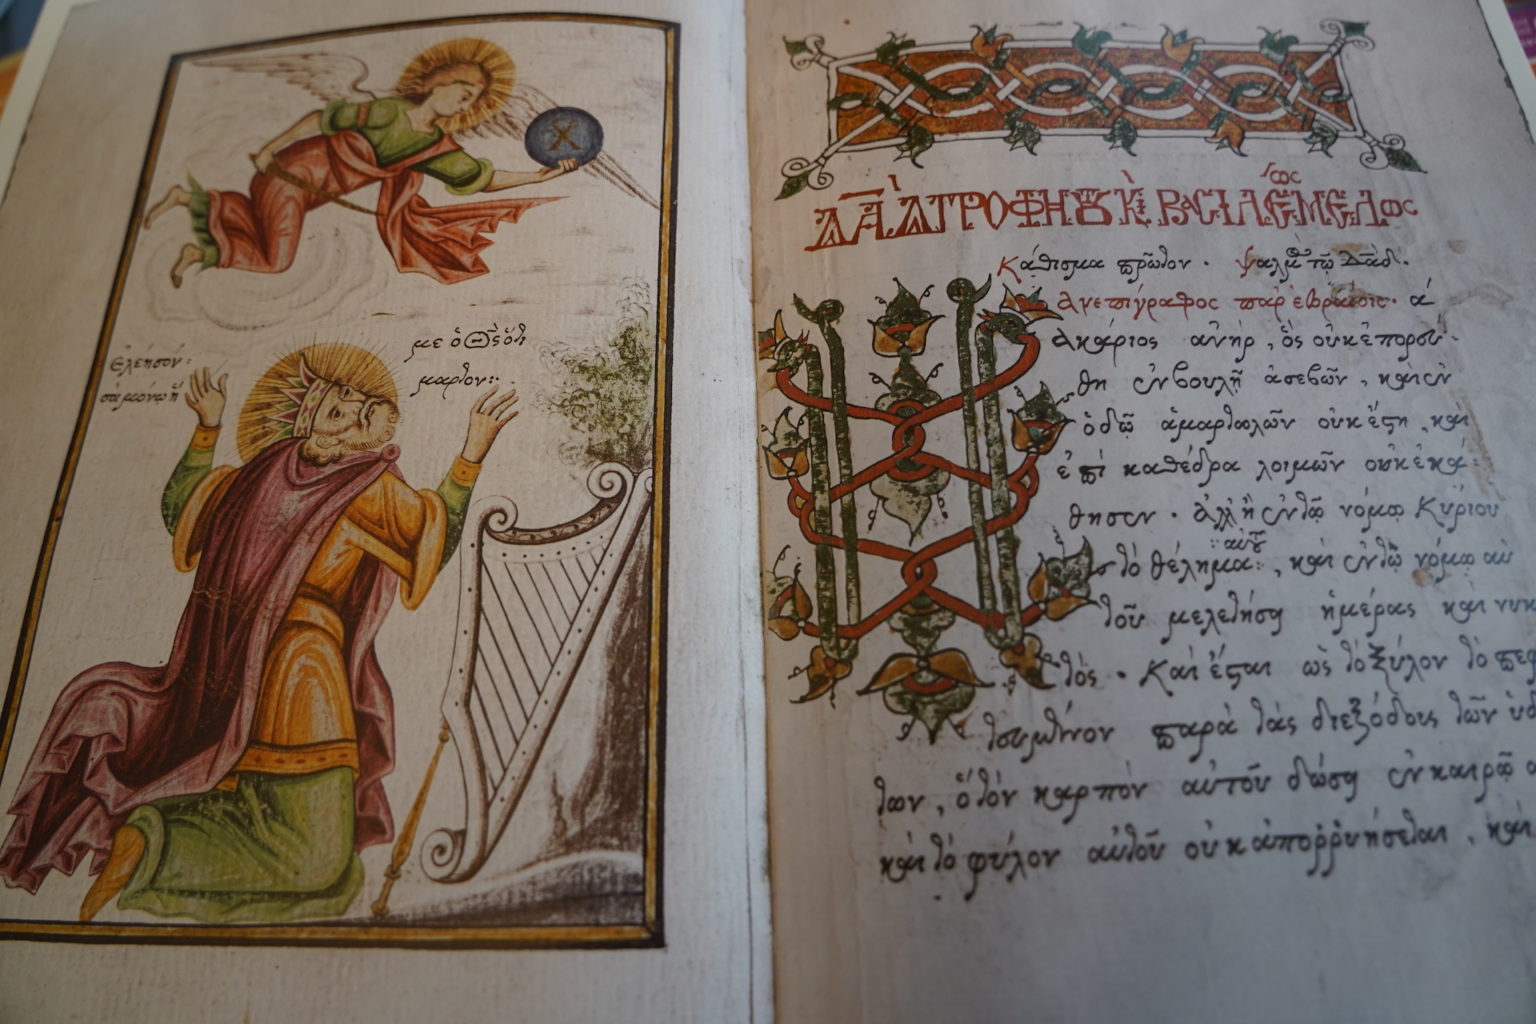 Ἐλέησόν
με ὁ Θ(εό)ς ὅτι
σοι μόνῳ ἥ
μαρτον:
Δᾱδ προφήτου κ(αὶ) βασιλέως μέλος
Κάθισμα πρῶτον · ψαλμὸς τῷ Δᾱδ ·
Ἀνεπίγραφος παρ' ἑβραίοις · ά
Μακάριος ἀνήρ, ὃς οὐκ ἐπορεύ-
θη ἐν βουλῇ ἀσεβῶν, καὶ ἐν
ὁδῷ ἁμαρτωλῶν οὐκ ἔστη, καὶ
ἐπὶ καθέδρα λοιμῶν οὐκ ἐκά-
θησεν · ἀλλ' ἢ ἐν τῷ νόμῳ Κυρίου
αὐτοῦ
τὸ θέλημα, καὶ ἐν τῷ νόμῳ αὐ
τοῦ μελετήσῃ ἡμέρας καὶ νυκ
τὸς · Καὶ ἔσται ὡς τὸ ξύλον τὸ πεφ
τευμένον παρὰ τὰς διεξόδους τῶν ὑδ
των, ὃ τὸν καρπὸν αὐτοῦ δώσῃ ἐν καιρῷ α
καὶ τὸ φύλον αὐτοῦ οὐκ ἀπορρυήσεται, καὶ